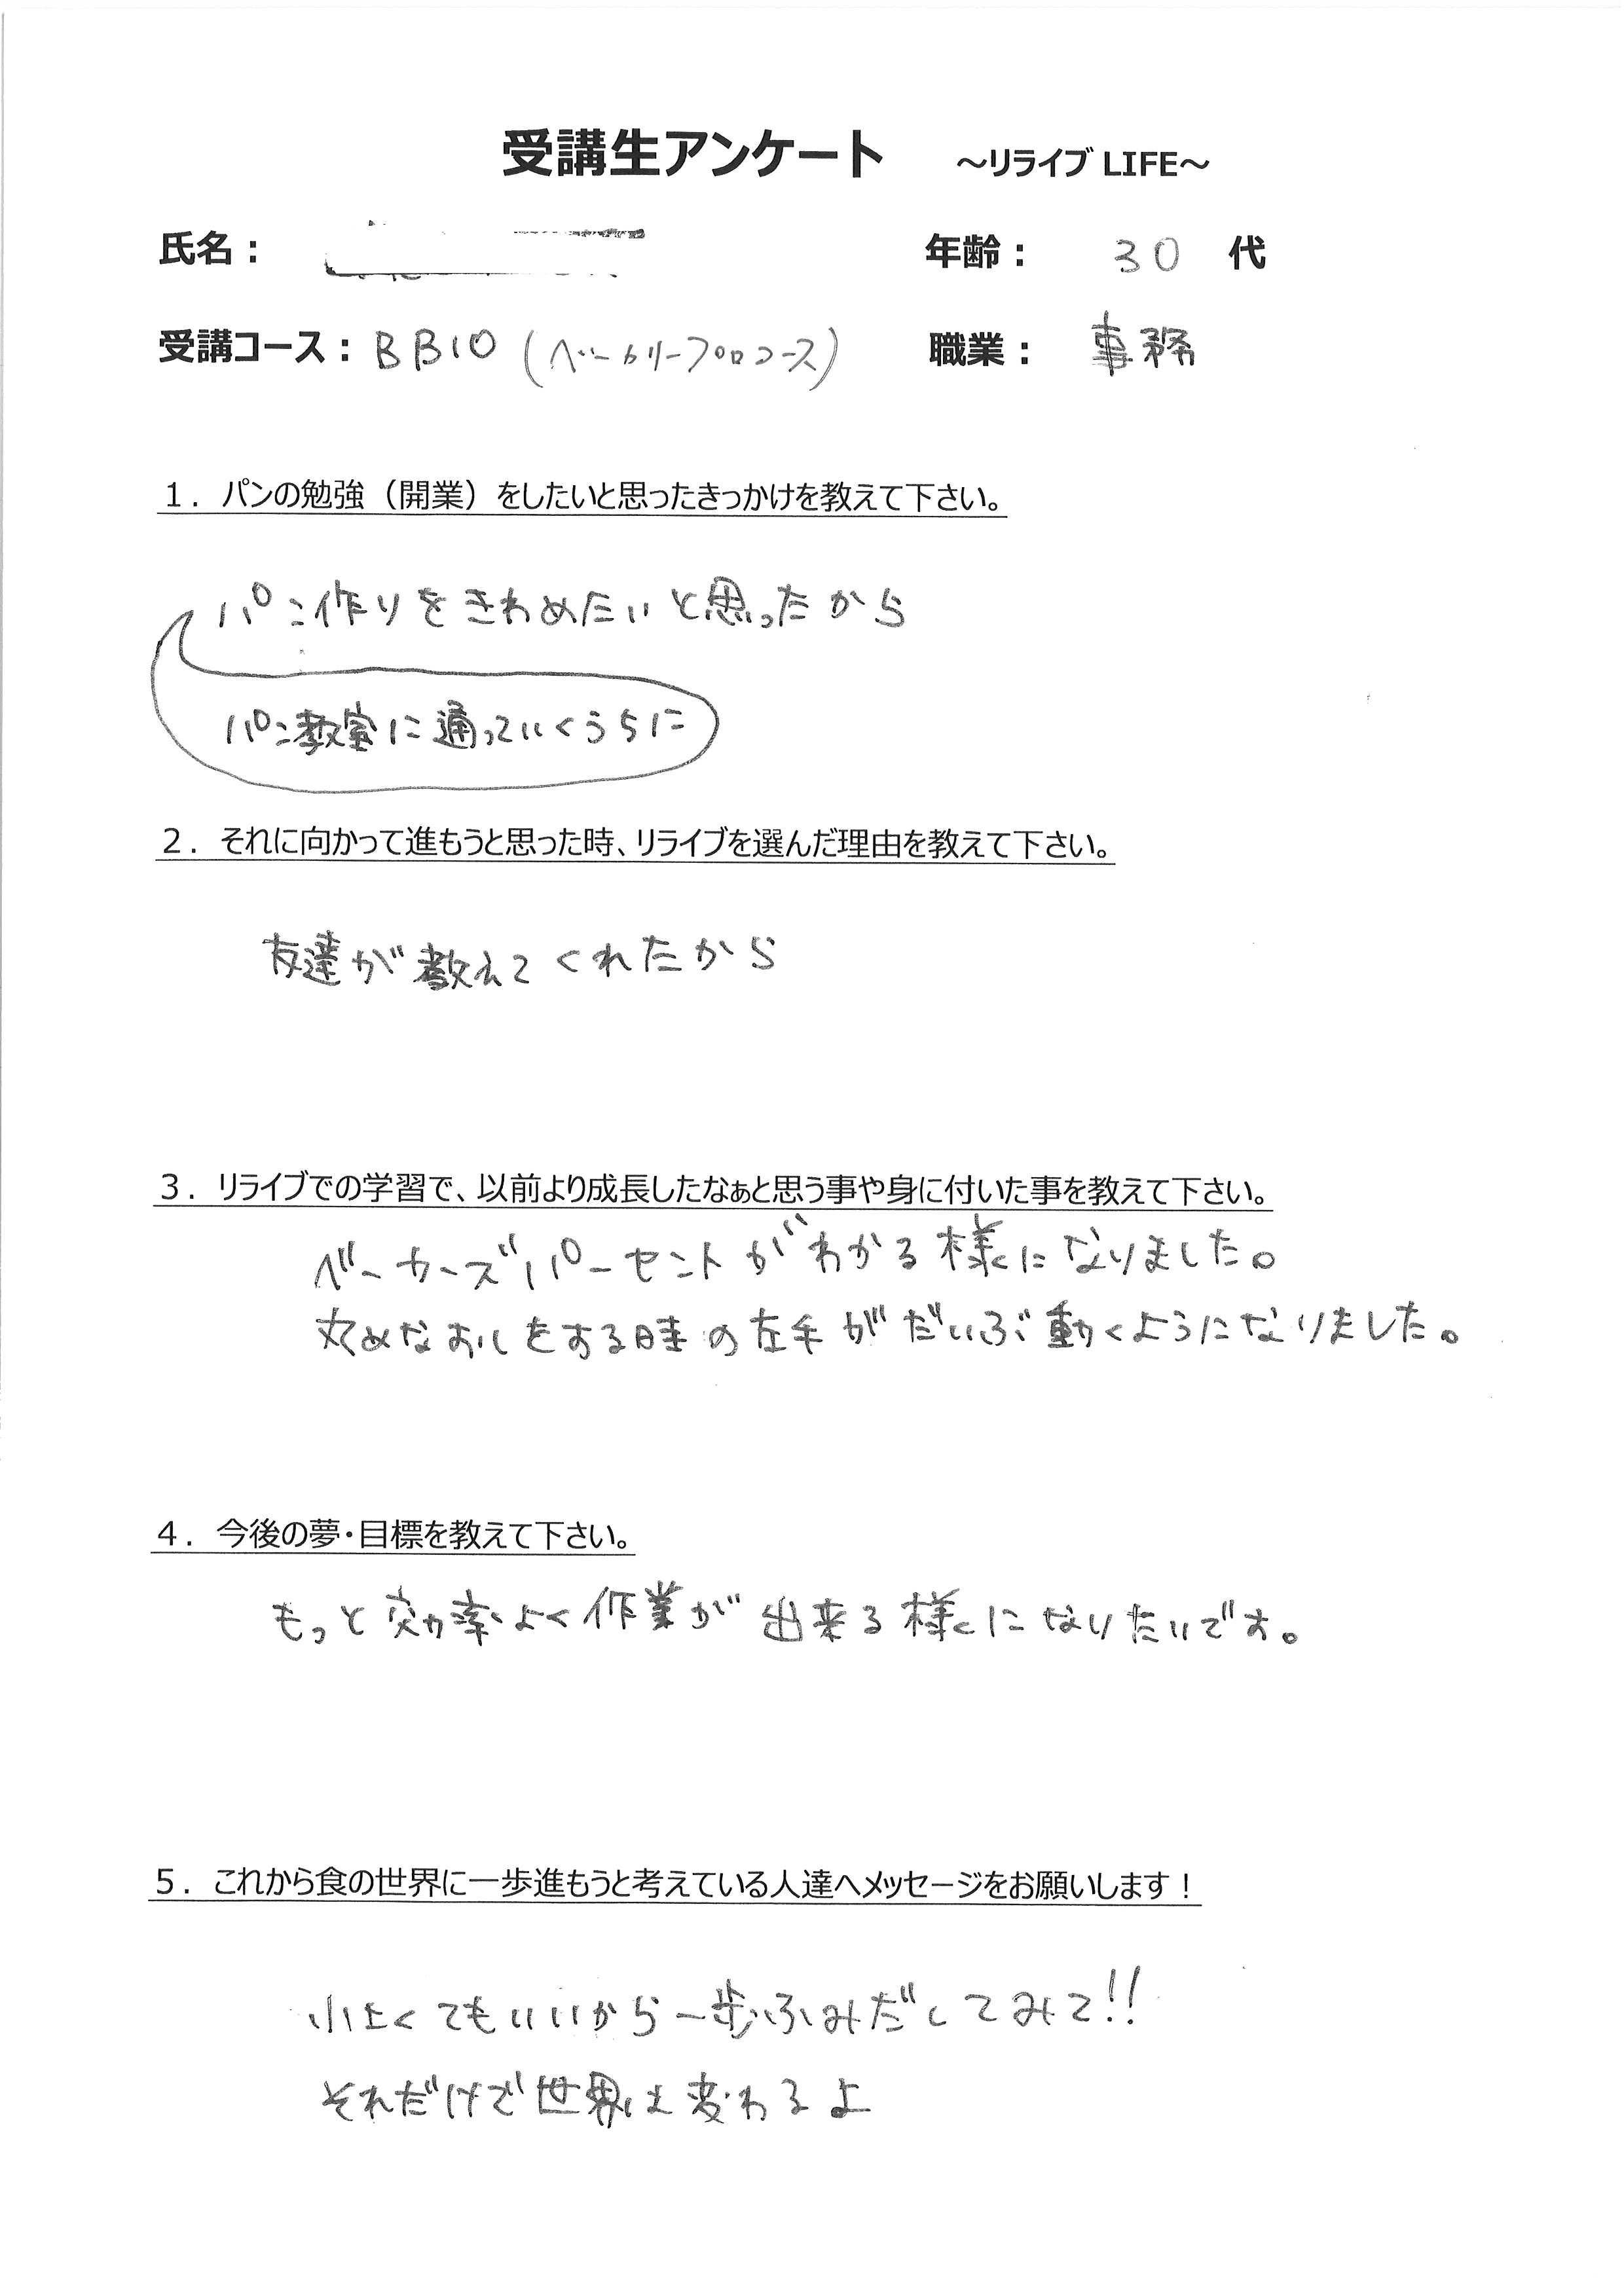 受講生アンケート ～リライブ LIFE～
氏名： 年齢： 30 代
受講コース：BB10（ベーカリープロコース） 職業： 事務
１．パンの勉強（開業）をしたいと思ったきっかけを教えて下さい。
パン作りをきわめたいと思ったから
パン教室に通っていくうちに
２．それに向かって進もうと思った時、リライブを選んだ理由を教えて下さい。
友達が教えてくれたから
３．リライブでの学習で、以前より成長したなぁと思う事や身に付いた事を教えて下さい。
ベーカーズパーセントがわかる様になりました。
丸めなおしをする時の左手がだいぶ動くようになりました。
４．今後の夢・目標を教えて下さい。
もっと効率よく作業が出来る様になりたいです。
５．これから食の世界に一歩進もうと考えている人達へメッセージをお願いします！
小さくてもいいから一歩ふみだしてみて!!
それだけで世界は変わるよ